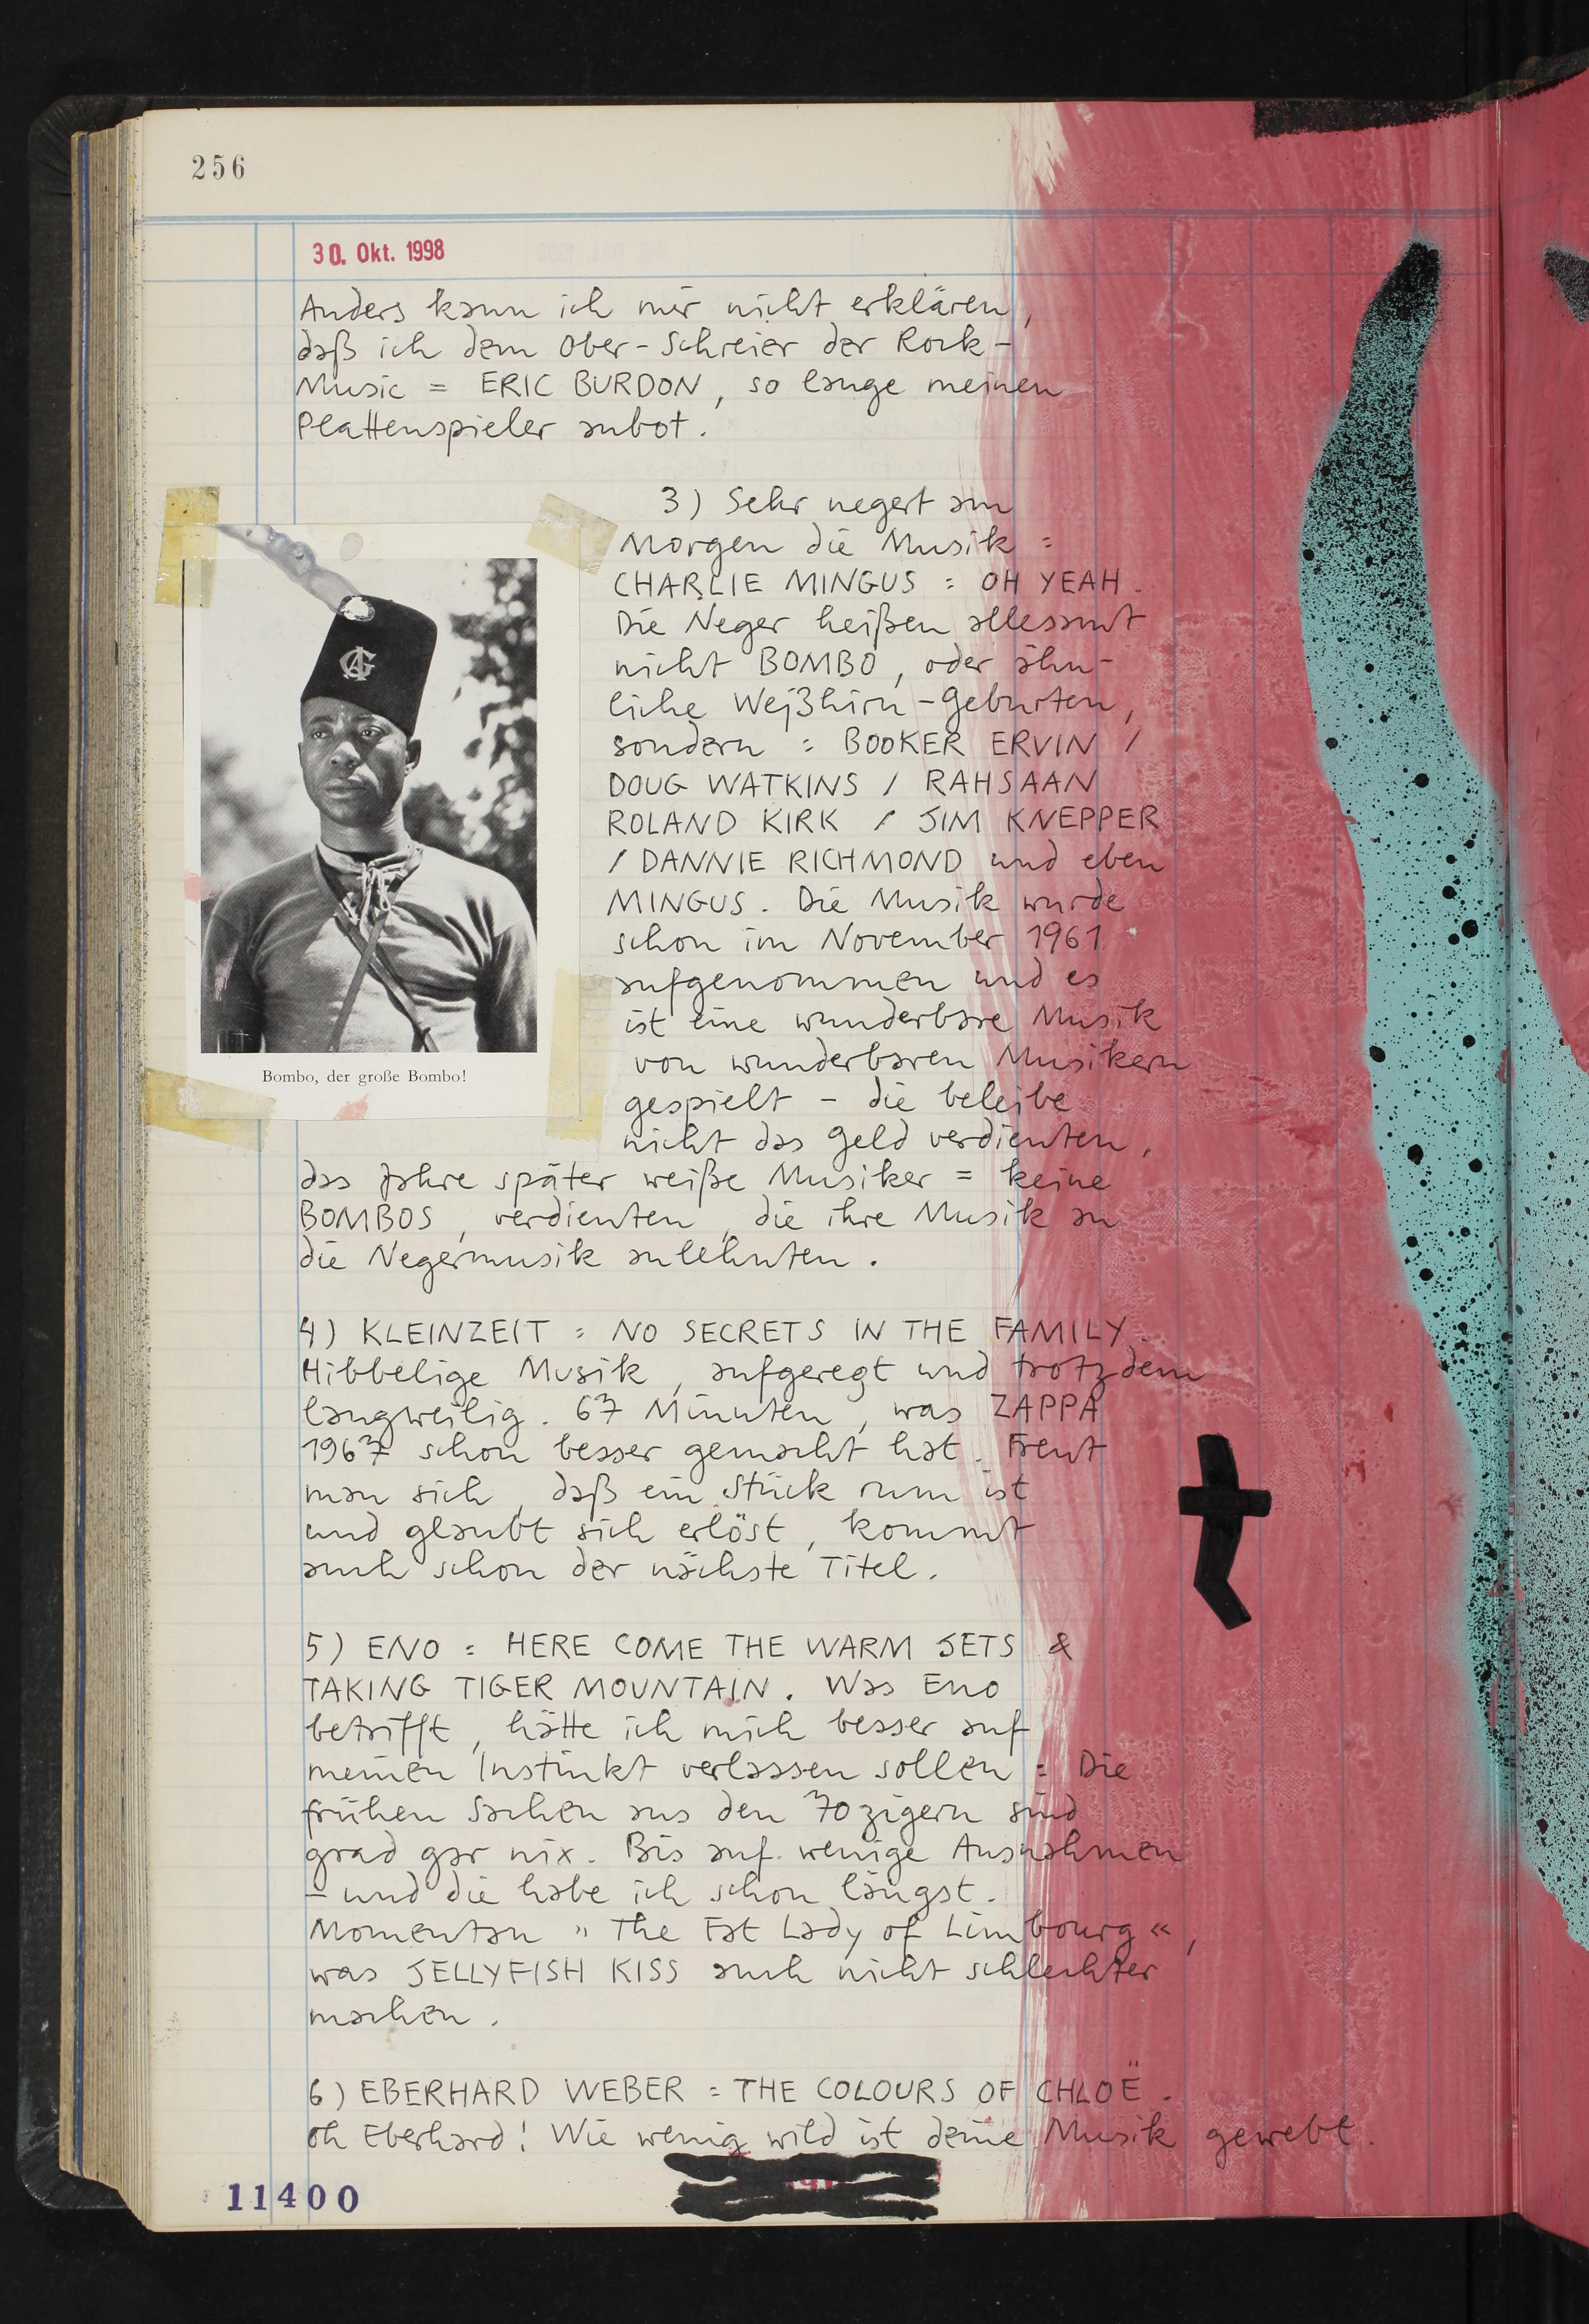 256
30. Okt. 1998
Anders kann ich mir nicht erklären,
daß ich dem Ober-Schreier der Rock-
Music = ERIC BURDON, so lange meinen
Plattenspieler anbot.
3) Sehr negert am
Morgen die Musik =
CHARLIE MINGUS = OH YEAH.
Die Neger heißen allesamt
nicht BOMBO, oder ähn-
liche Weißhirn-Geburten,
sondern = BOOKER ERVIN /
DOUG WATKINS / RAHSAAN
ROLAND KIRK / JIM KNEPPER
/ DANNIE RICHMOND und eben
MINGUS. Die Musik wurde
schon im November 1961
aufgenommen und es
ist eine wunderbare Musik
von wunderbaren Musikern
gespielt - die beleibe
nicht das Geld verdienten,
das Jahre später weiße Musiker = keine
BOMBOS, verdienten, die ihre Musik an
die Negermusik anlehnten.
Bombo, der große Bombo!
4) KLEINZEIT = NO SECRETS IN THE FAMILY.
Hibbelige Musik, aufgeregt und trotzdem
langweilig. 67 Minuten, was ZAPPA
1967 schon besser gemacht hat. Freut
man sich, daß ein Stück rum ist
und glaubt sich erlöst, kommt
auch schon der nächste Titel.
5) ENO = HERE COME THE WARM JETS &
TAKING TIGER MOUNTAIN. Was Eno
betrifft, hätte ich mich besser auf
meinen Instinkt verlassen sollen = Die
frühen Sachen aus den 70zigern sind
grad gar nix. Bis auf wenige Ausnahmen
- und die habe ich schon längst.
Momentan "The Fat Lady of Limbourg",
was JELLYFISH KISS auch nicht schlechter
machen.
6) EBERHARD WEBER = THE COLOURS OF CHLOË.
Oh Eberhard! Wie wenig wild ist deine Musik gewebt.
11400